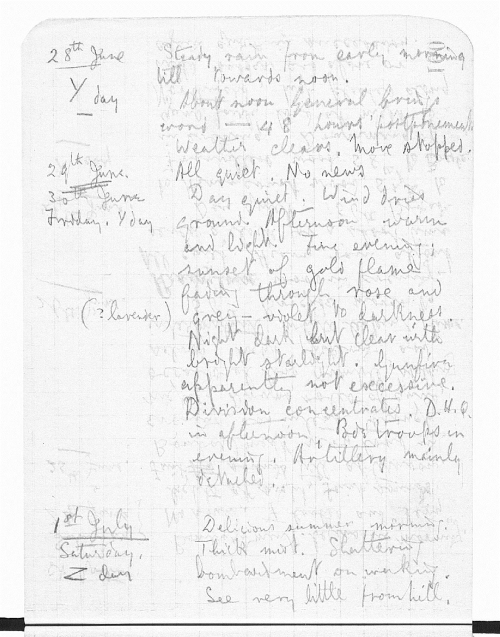 28th June Steady rain from early morning
till towards noon.
Y day About noon General brings
word — 48 hours postponement
Weather clears. Move stopped.
29th June. All quiet. No news
30th June Day quiet. Wind dries
Friday. Y day ground. Afternoon warm
and bright. Fine evening;
sunset of gold flame
fading through rose and
(? lavender) grey-violet to darkness.
Night dark but clear with
bright starlight. Gunfire
apparently not excessive.
Division concentrated. D.H.Q.
in afternoon, troops in
evening. Artillery mainly
detached.
1st July Delicious summer morning.
Saturday. Thick mist. Shattering
Z day bombardment on waking.
See very little from hill.